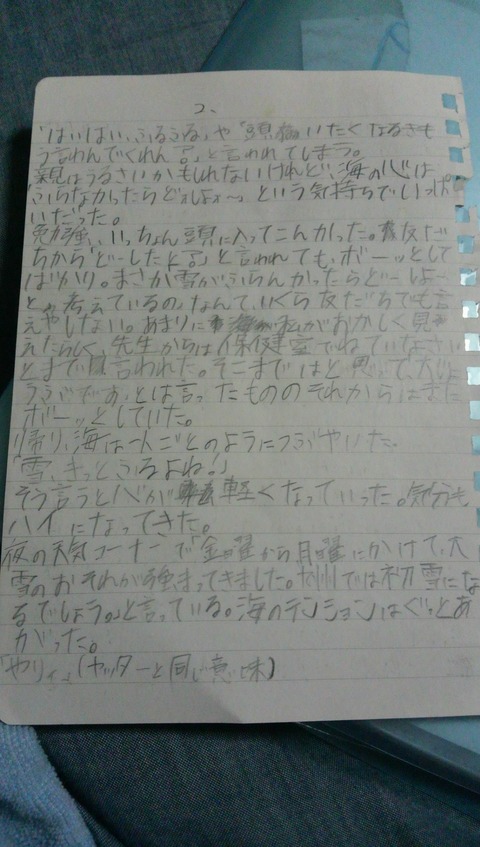 2、
「はいはい、ふるふる」や「頭痛いたくなるきも
う言わんでくれん?」と言われてしまう。
親はうるさいかもしれないけれど、海の心は、
「ふらなかったらどぉしよ〜」という気持ちでいっぱ
いだった。
勉強、いっちょん頭に入ってこんかった。友だ
ちから「どーしたと?」と言われても、ボーッとして
ばかり。まさか雪がふらんかったらどーしよー
と、考えているの、なんて、いくら友だちでも言
えやしない。あまりに私がおかしく見
えたらしく、先生からは「保健室でねていなさい」
とまで言われた。そこまではと思いて、「大じょ
うぶです」とは言ったものの それからはまた
ボーッとしていた。
帰り、海は一人ごとのようにつぶやいた。
「雪、きっとふるよね!」
そう言うと心が軽くなっていった。気分も
ハイになってきた。
夜の天気コーナーで「金曜から月曜にかけて、大
雪のおそれが強まってきました。九州では初雪にな
るでしょう。」と言っている。海のテンションはぐっとあ
がった。
「やりィ」(ヤッターと同じ意味)